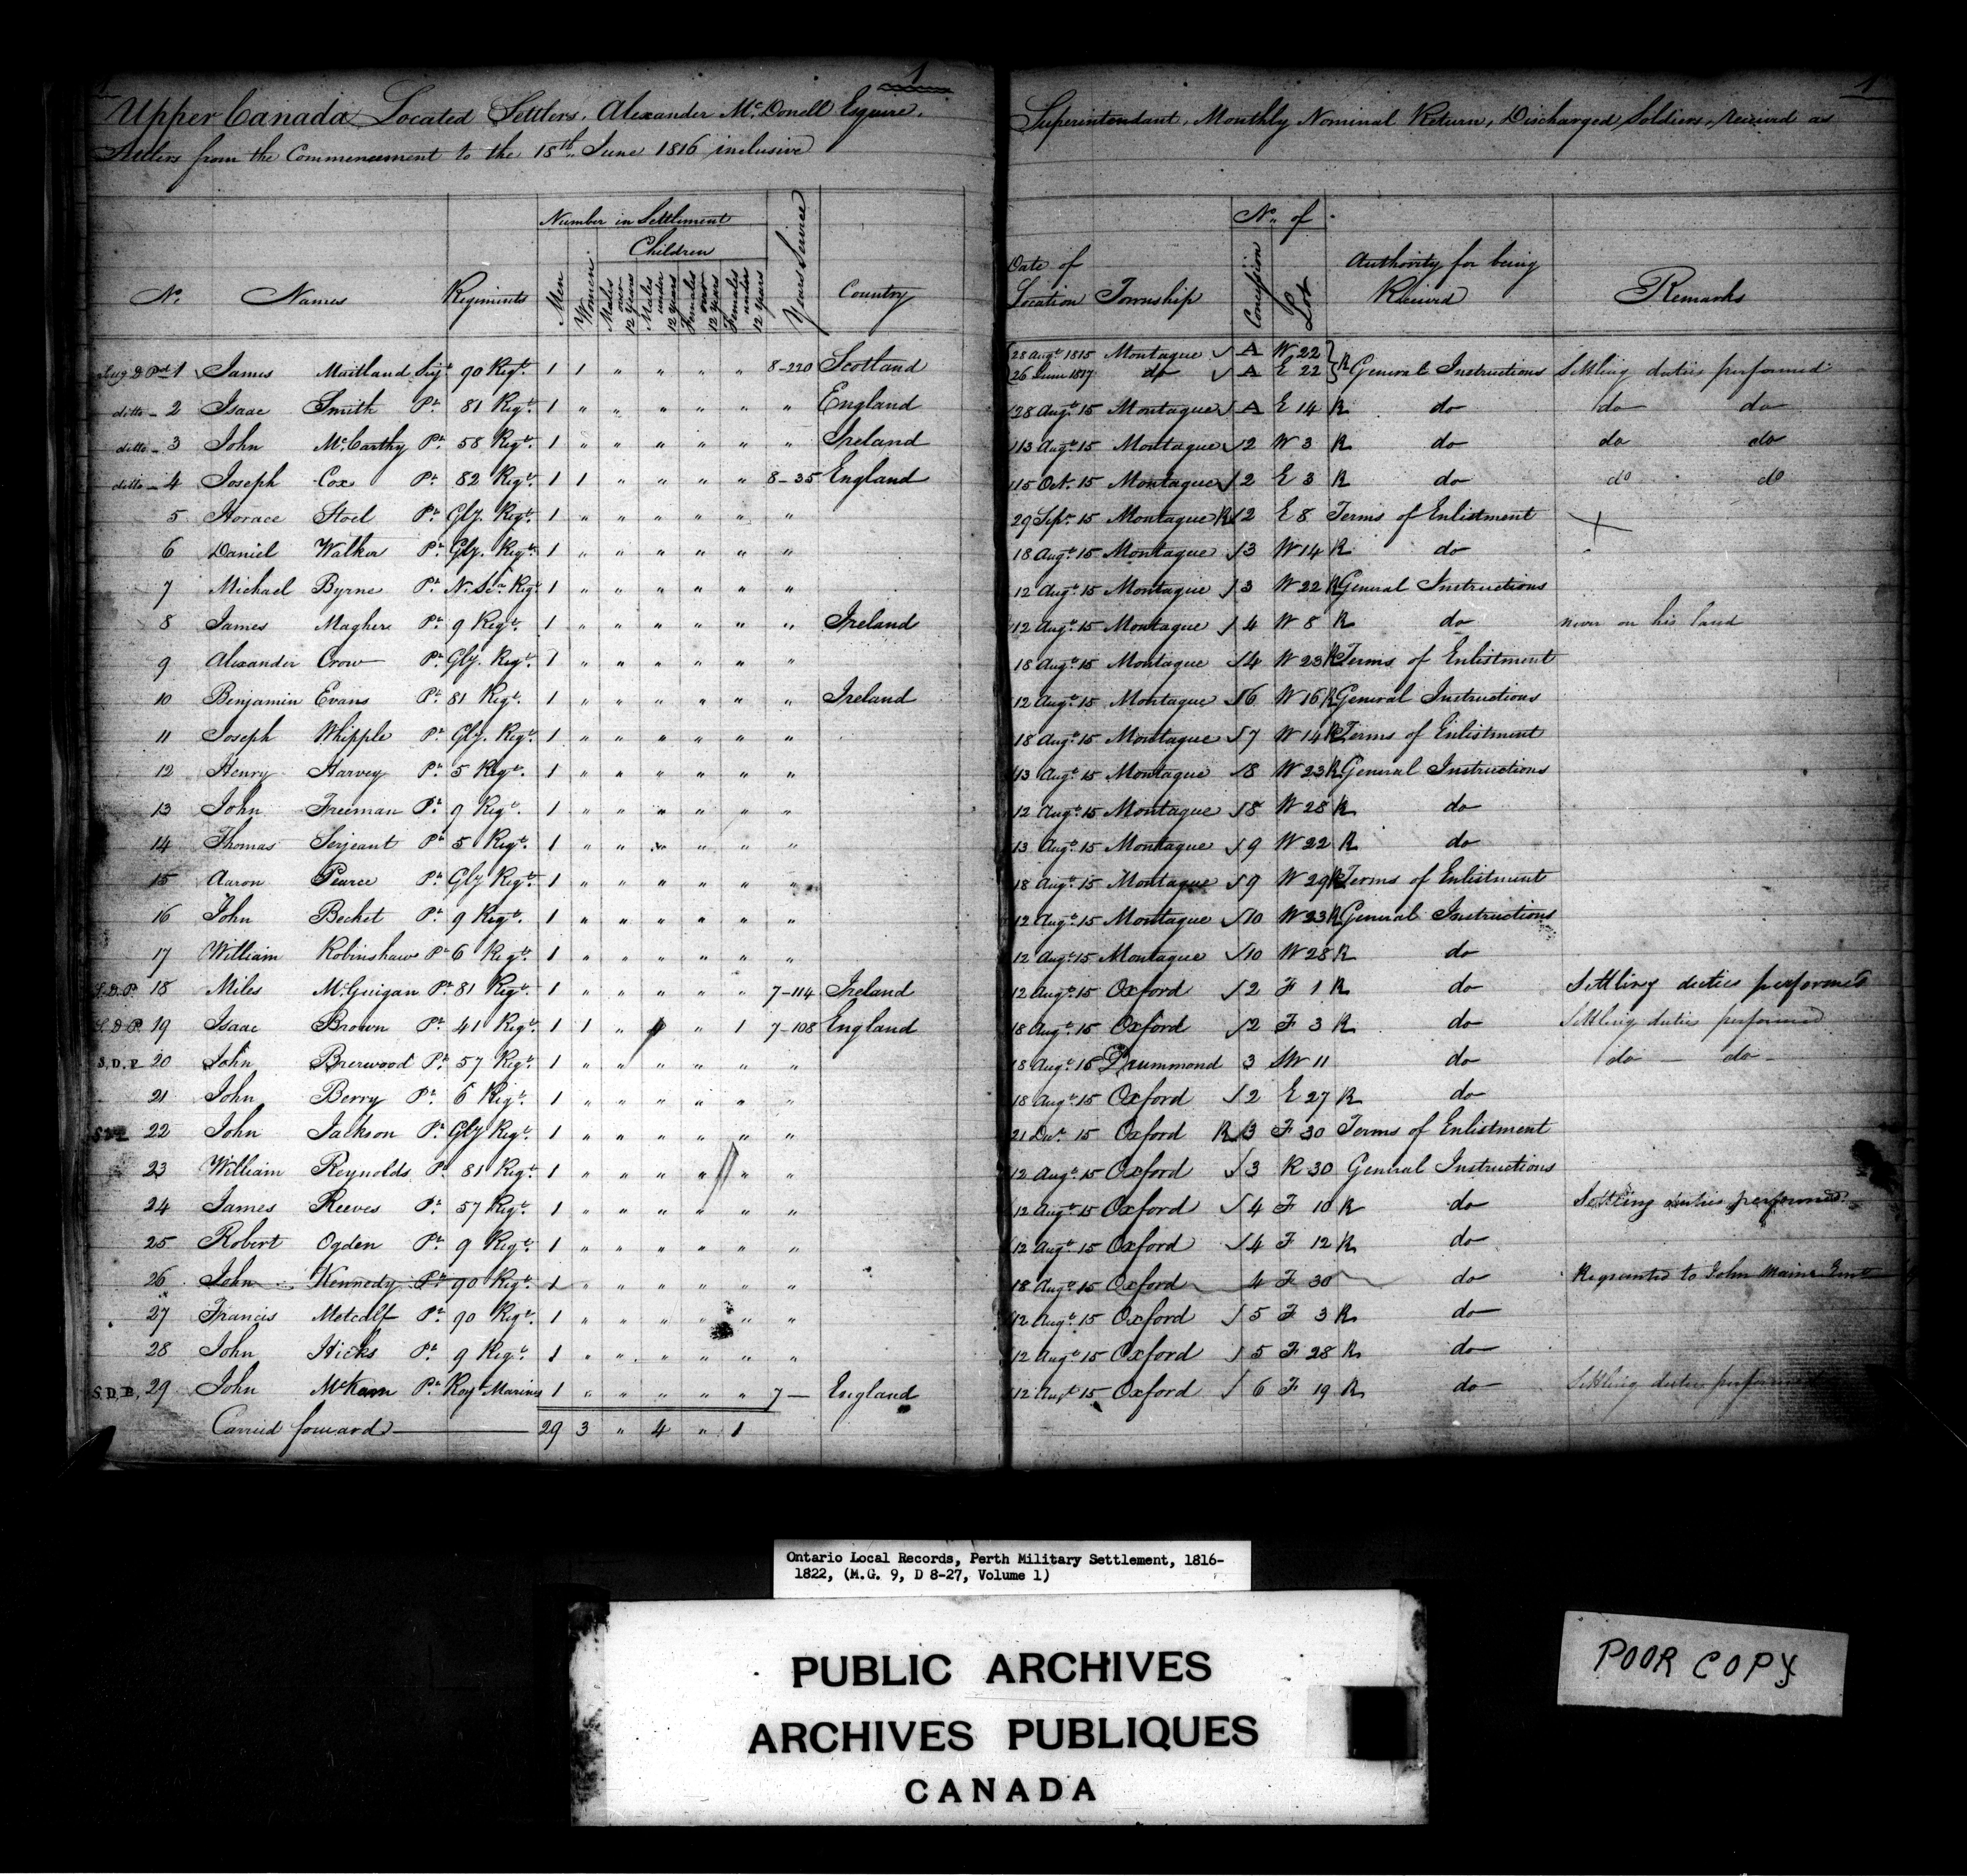 1
Upper Canada Located Settlers, Alexander Mc.Donell Esquire.
Settlers from the Commencement to the 18th June 1816 inclusive
No. Names Regiments Number in Settlement Years Service Country
Children
Men Women Males over 12 years Males under 12 years Females over 12 years Females under 12 years
1 James Maitland Serjt 90 Regt. 1 1 " " " " 8-220 Scotland
ditto - 2 Isaac Smith Pt. 81 Regt. 1 " " " " " " England
ditto - 3 John McCarthy Pt. 58 Regt. 1 " " " " " " Ireland
ditto - 4 Joseph Cox Pt. 82 Regt. 1 1 " " " " 8-35 England
5 Horace Stoel Pt. Gly. Regt. 1 " " " " " "
6 Daniel Walker Pt. Gly. Regt. 1 " " " " " "
7 Michael Byrne Pt. N. Sca Regt 1 " " " " " "
8 James Maghere Pt. 9 Regt. 1 " " " " " " Ireland
9 Alexander Crow Pt. Gly. Regt. 1 " " " " " "
10 Benjamin Evans Pt. 81 Regt. 1 " " " " " " Ireland
11 Joseph Whipple Pt. Gly. Regt. 1 " " " " " "
12 Henry Harvey Pt. 5 Regt. 1 " " " " " "
13 John Freeman Pt. 9 Regt. 1 " " " " " "
14 Thomas Serjeant Pt. 5 Regt. 1 " " " " " "
15 Aaron Pearce Pt. Gly Regt. 1 " " " " " "
16 John Bechet Pt. 9 Regt. 1 " " " " " "
17 William Robinshaw Pt 6 Regt. 1 " " " " " "
S.D.P. 18 Miles McGuigan Pt. 81 Regt. 1 " " " " " 7-114 Ireland
S.D.P. 19 Isaac Brown Pt. 41 Regt. 1 1 " 4 " 1 7-108 England
S.D.P 20 John Brerwood Pt. 57 Regt. 1 " " " " " "
21 John Berry Pt. 6 Regt. 1 " " " " " "
22 John Jackson Pt. Gly Regt. 1 " " " " " "
23 William Reynolds Pt. 81 Regt. 1 " " " " " "
24 James Reeves Pt. 57 Regt. 1 " " " " " "
25 Robert Ogden Pt. 9 Regt. 1 " " " " " "
26 John Kennedy Pt. 90 Regt. 1 " " " " " "
27 Francis Metcalf Pt. 90 Regt. 1 " " " " " "
28 John Hicks Pt. 9 Regt. 1 " " " " " "
S.D.P. 29 John McKam Pt. Royl Marines 1 " " " " " 7 — England
Carried forward — 29 3 " 4 " 1
1
Superintendant, Monthly Nominal Return, Discharged Soldiers, received as
Date of Location Township No. of Concession Lot Authority for being Received Remarks
28 Augt 1815 Montague A W 22
26 June 1817 do A E 22 R General Instructions Settling duties performed
28 Augt. 15 Montague A E 14 R do do do
13 Augt. 15 Montague 2 W 3 R do do do
15 Oct. 15 Montague 2 E 3 R do do do
29 Sepr. 15 Montague R 2 E 8 Terms of Enlistment
18 Augt. 15 Montague 3 W 14 R do
12 Augt. 15 Montague 3 W 22 R General Instructions
12 Augt. 15 Montague 4 W 8 R do never on his land
18 Augt. 15 Montague 4 W 23 R Terms of Enlistment
12 Augt. 15 Montague 6 W 16 R General Instructions
18 Augt. 15 Montague 7 W 14 R Terms of Enlistment
13 Augt. 15 Montague 8 W 23 R General Instructions
12 Augt. 15 Montague 8 W 28 R do
13 Augt. 15 Montague 9 W 22 R do
18 Augt. 15 Montague 9 W 29 R Terms of Enlistment
12 Augt. 15 Montague 10 W 23 R General Instructions
12 Augt. 15 Montague 10 W 28 R do
12 Augt. 15 Oxford 2 F 1 R do Settling duties performed
18 Augt. 15 Oxford 2 F 3 R do Settling duties performed
18 Augt. 15 Drummond 3 SW 11 do do - do -
18 Augt. 15 Oxford 2 E 27 R do
21 Decr. 15 Oxford R 3 F 30 Terms of Enlistment
12 Augt. 15 Oxford 3 R 30 General Instructions
12 Augt. 15 Oxford 4 F 10 R do Settling duties performed
12 Augt. 15 Oxford 4 F 12 R do
18 Augt. 15 Oxford 4 F 30 do Regranted to John Mains
12 Augt. 15 Oxford 5 F 3 R do
12 Augt. 15 Oxford 5 F 28 R do
12 Augt. 15 Oxford 6 F 19 R do Settling duties performed
Ontario Local Records, Perth Military Settlement, 1816-
1822, (M.G. 9, D 8-27, Volume 1)
PUBLIC ARCHIVES
ARCHIVES PUBLIQUES
CANADA
POOR COPY